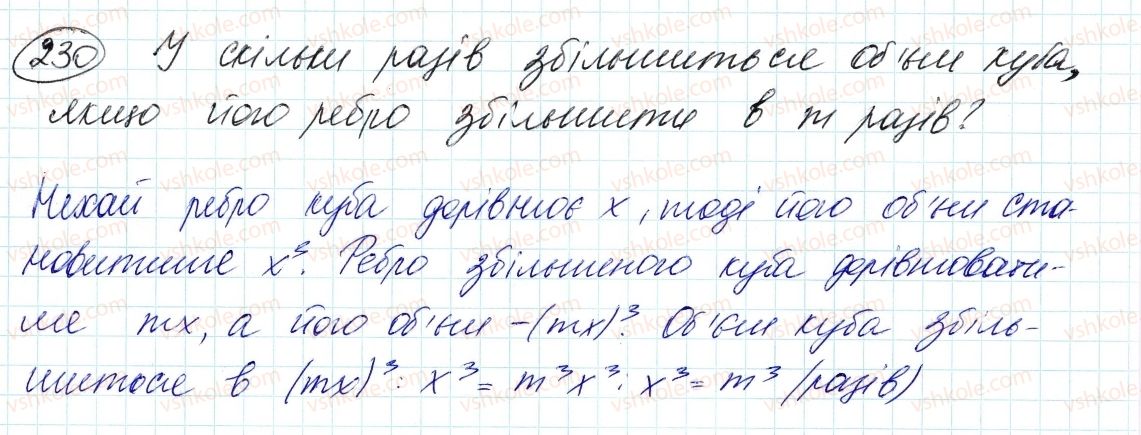 230 У скільки разів збільшиться об'єм куба,
якщо його ребро збільшити в m разів?
Нехай ребро куба дорівнює x, тоді його об'єм ста-
новитиме x³. Ребро збільшеного куба дорівнювати-
ме mx, а його об'єм – (mx)³. Об'єм куба збіль-
шиться в (mx)³ : x³ = m³x³ : x³ = m³ (разів)